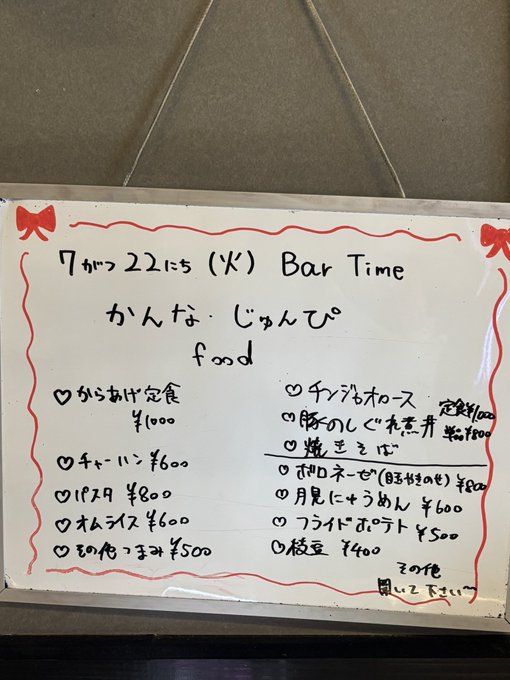 7がつ22にち (火) Bar Time
かんな・じゅんぴ
food
♡からあげ定食
¥1000
♡チャーハン ¥600
♡パスタ ¥800
♡オムライス ¥600
♡その他つまみ ¥500
♡チンジャオロース
♡豚のしぐれ煮丼
♡焼きそば
定食¥1000
単品¥800
♡ボロネーゼ(目玉やきのせ) ¥800
♡月見にゅうめん ¥600
♡フライドポテト ¥500
♡枝豆 ¥400
その他
聞いて下さい〜